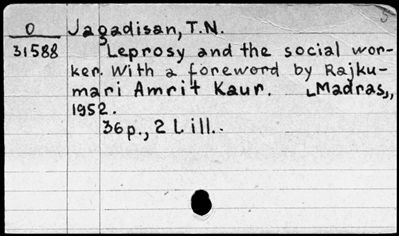 O Jagadisan, T.N.
31588 Leprosy and the social wor-
ker. With a foreword by Rajku-
mari Amrit Kaur. Madras,
1952.
36p., 2 l ill.